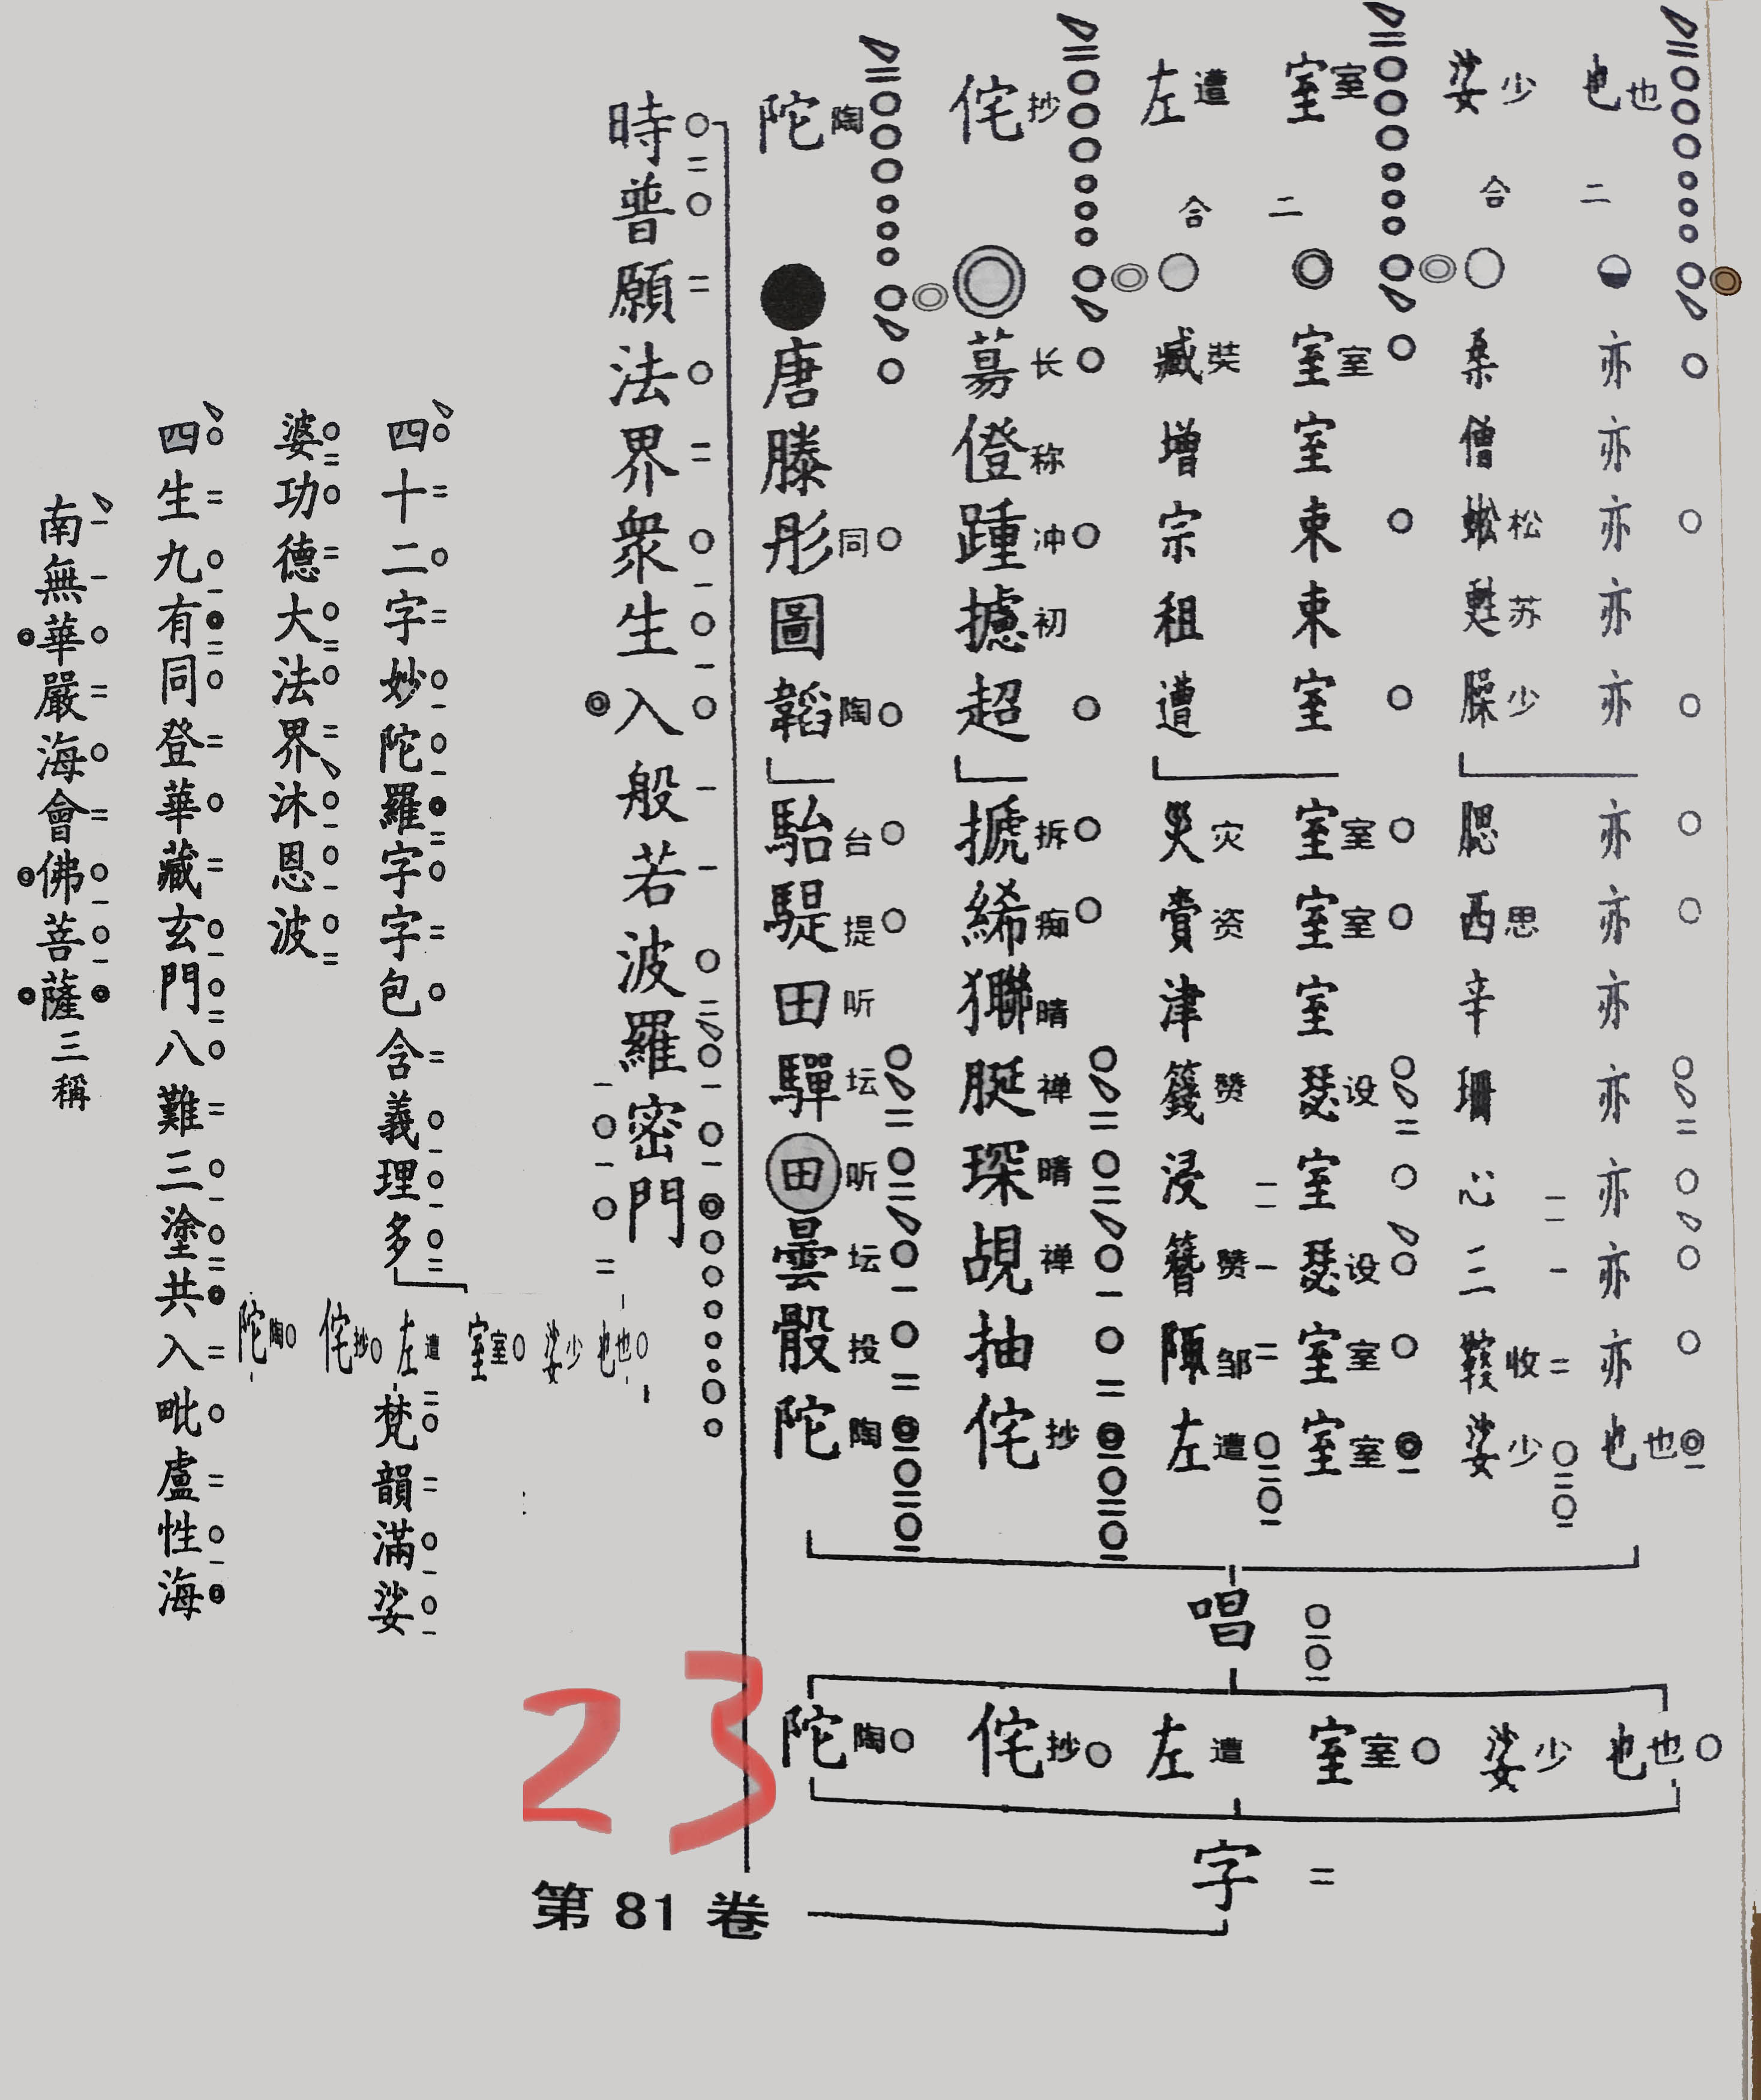 也也 亦亦亦亦亦 亦亦亦亦亦亦亦 也也
二合
娑少 桑僧蜙松甦苏臊少 腮西思辛珊心三鞖收 娑少
室室 室室室束束室 室室室室室瑟设室瑟设室室 室室
二合
左遭 臧奘增宗租遭 災灾賫资津籛赞浸簪赞陬邹 左遭
侘抄 募长僜称踵冲摅初超 搋拆絺痴獬晴脠禅琛晴觇禅抽 侘抄
陀陶 唐滕彤同圖韜陶 駘台騠提田听驒坛田听曇坛骰投 陀陶
唱
陀陶 侘抄 左遭 室室 娑少 也也
字
時普願法界衆生入般若波羅密門
四十二字妙陀羅字字包含義理多
陀陶 侘抄 左遭 室室 娑少 也也
梵韻滿娑
婆功德大法界沐恩波
四生九有同登華藏玄門八難三塗共入毗盧性海
南無華嚴海會佛菩薩三稱
23
第81卷